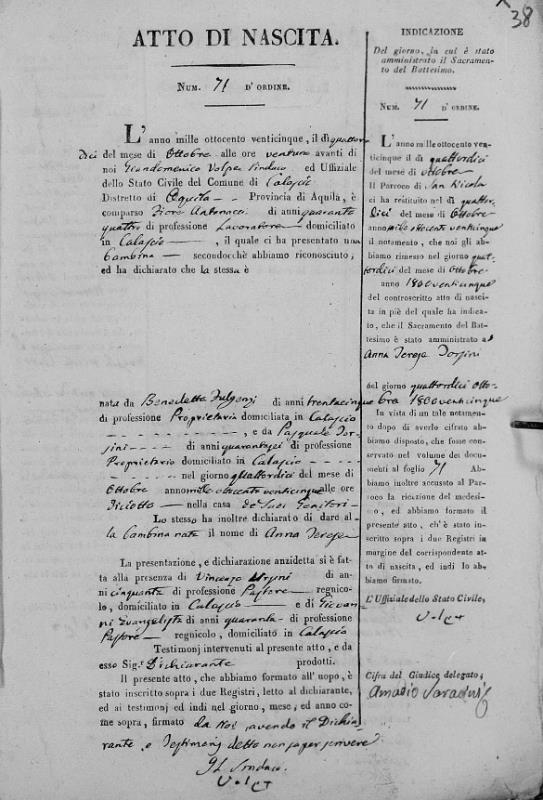 38
ATTO DI NASCITA.
Num. 71 d'ordine.
L'anno mille ottocento venticinque, il dì quattor
dici del mese di Ottobre alle ore ventuno avanti di
noi Giandomenico Volpe Sindaco ed Uffiziale
dello Stato Civile del Comune di Calascio
Distretto di Aquila Provincia di Aquila, è
comparso Fiore Antonacci di anni quaranta
quattro di professione Lavoratore domiciliato
in Calascio, il quale ci ha presentato una
bambina secondocchè abbiamo riconosciuto,
ed ha dichiarato che la stessa è
nata da Benedetta Fulgenzj di anni trentacinque
di professione Proprietaria domiciliata in Calascio
, e da Pasquale
di anni quarantasei di professione
Proprietario domiciliato in Calascio
nel giorno quattordici del mese di
Ottobre anno mille ottocento venticinque alle ore
Diciotto nella casa de' Suoi Genitori
Lo stesso ha inoltre dichiarato di dare al
la bambina nata il nome di Anna Teresa
La presentazione, e dichiarazione anzidetta si è fat-
ta alla presenza di Vincenzo Ursini di an-
ni cinquanta di professione Pastore regnico-
lo, domiciliato in Calascio e di Giovan
ni Evangelista di anni quaranta di professione
Pastore regnicolo, domiciliato in Calascio
Testimonj intervenuti al presente atto, e da
esso Sig. Dichiarante prodotti.
Il presente atto, che abbiamo formato all'uopo, è
stato inscritto sopra i due Registri, letto al dichiarante,
ed ai testimonj ed indi nel giorno, mese, ed anno co-
me sopra, firmato da Noi, avendo il Dichia
rante, e Testimonj detto non saper scrivere
Il Sindaco
Volpe
INDICAZIONE
Del giorno, in cui è stato
amministrato il Sacramen-
to del Battesimo.
Num. 71 d'ordine.
L'anno mille ottocento ven-
ticinque il dì quattordici
del mese di Ottobre
Il Parroco di San Nicola
ci ha restituito nel dì quattor-
dici del mese di Ottobre
anno mille ottocento venticinque
il notamento, che noi gli ab-
biamo rimesso nel giorno quat-
tordici del mese di Ottobre
anno 1800 venticinque
del controscritto atto di nasci-
ta in piè del quale ha indica-
to, che il Sacramento del Bat-
tesimo è stato amministrato ad
Anna Teresa
del giorno quattordici Otto-
bre 1800 venticinque
In vista di un tale notamen-
to dopo di averlo cifrato ab-
biamo disposto, che fosse con-
servato nel volume dei docu-
menti al foglio 71 Ab-
biamo inoltre accusato al Par-
roco la ricezione del medesi-
mo, ed abbiamo formato il
presente atto, ch'è stato in-
scritto sopra i due Registri in
margine del corrispondente at-
to di nascita, ed indi lo ab-
biamo firmato.
L'Uffiziale dello Stato Civile,
Volpe
Cifra del Giudice delegato,
Amadio